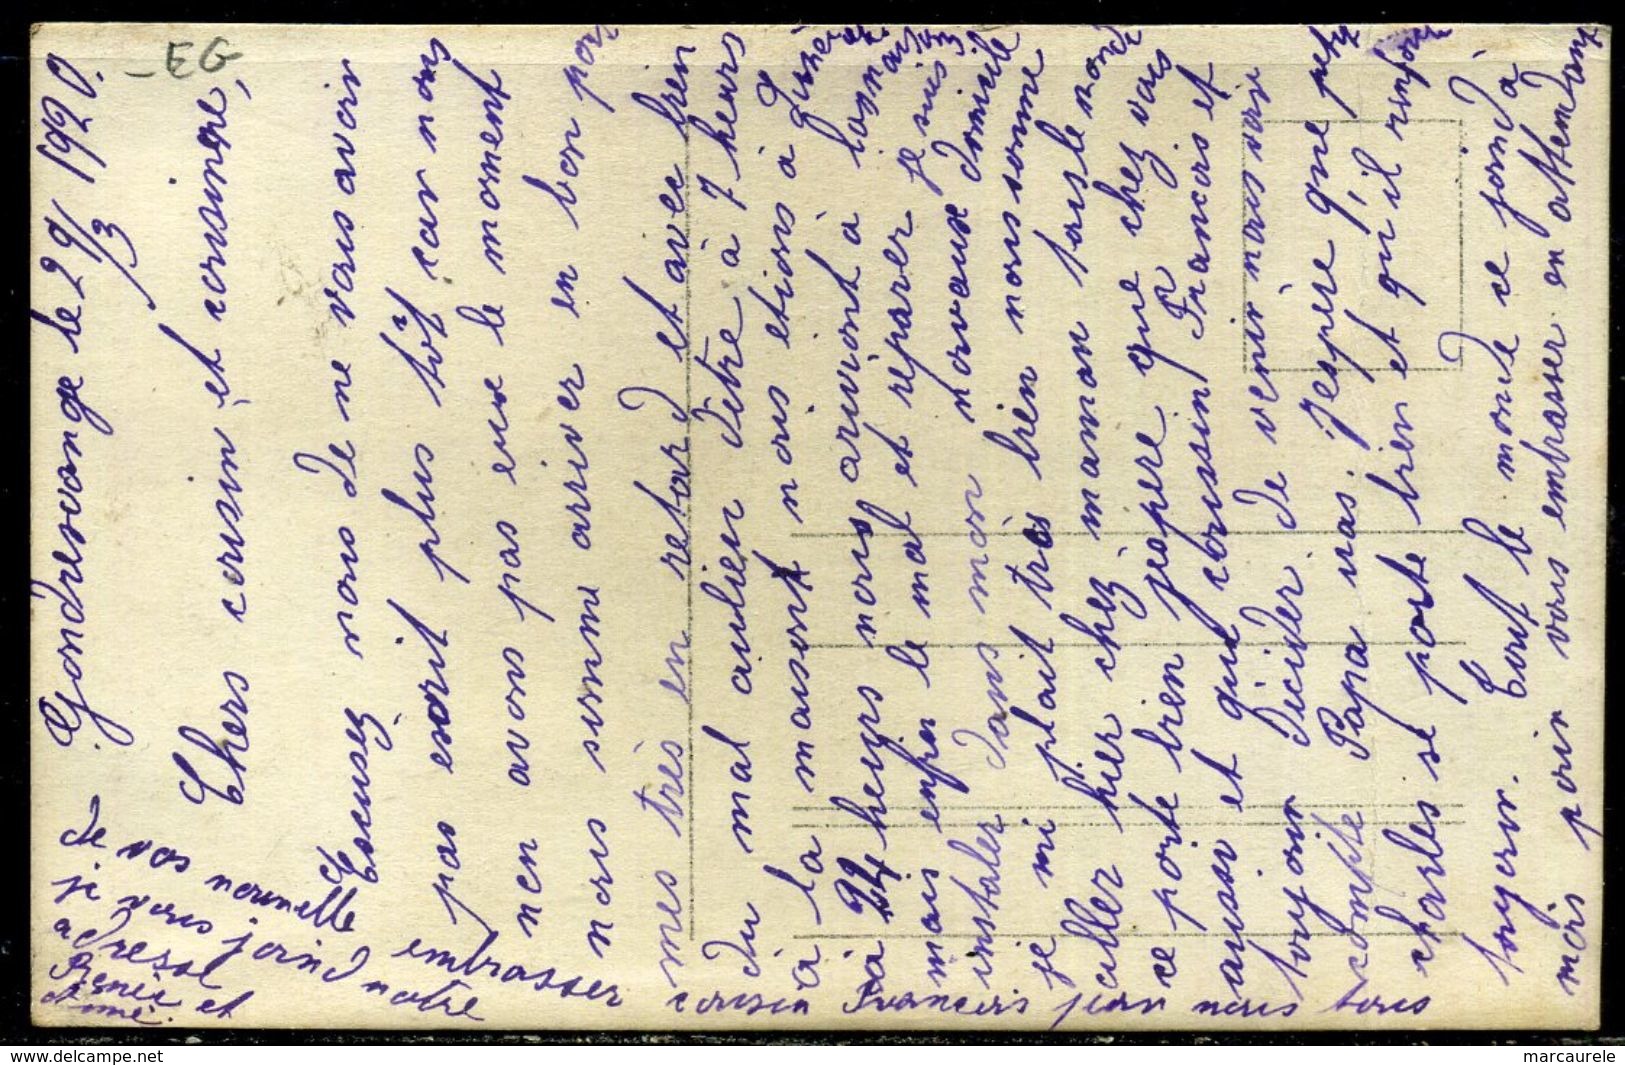 EG
Gondresevange le 29/3 1920.
Chers cousin et cousine,
Escusez nous de ne vous avoir
pas escrit plus tôt car nous
nen avons pas eue le moment
nous somme arriver en bon por
mes très en retard et avec bien
du mal aulieu d'être à 7 heurs
à la maisont nous etions à
à heurs nous ariviont à
mais enfin le mal et reparer je suis
instaler dans mon nouvaux domicile
je mi plait très bien nous somme
aller hier chez maman tousle monde
ce porte bien jespere que chez vous
aussi et que cousin François et
toujour décider de venir nous voir
compte Papa vas. J'espère que petit
charles se porte bien et qu'il
toujour. Tout le monde ce joind à
mois pour vous embrasser en attendant
de vos nouvelle
je vous joind notre
adresse
embrasser cousin Francois pour nous tous
Renée et
Aimé.
delcampe.net
marcaurele